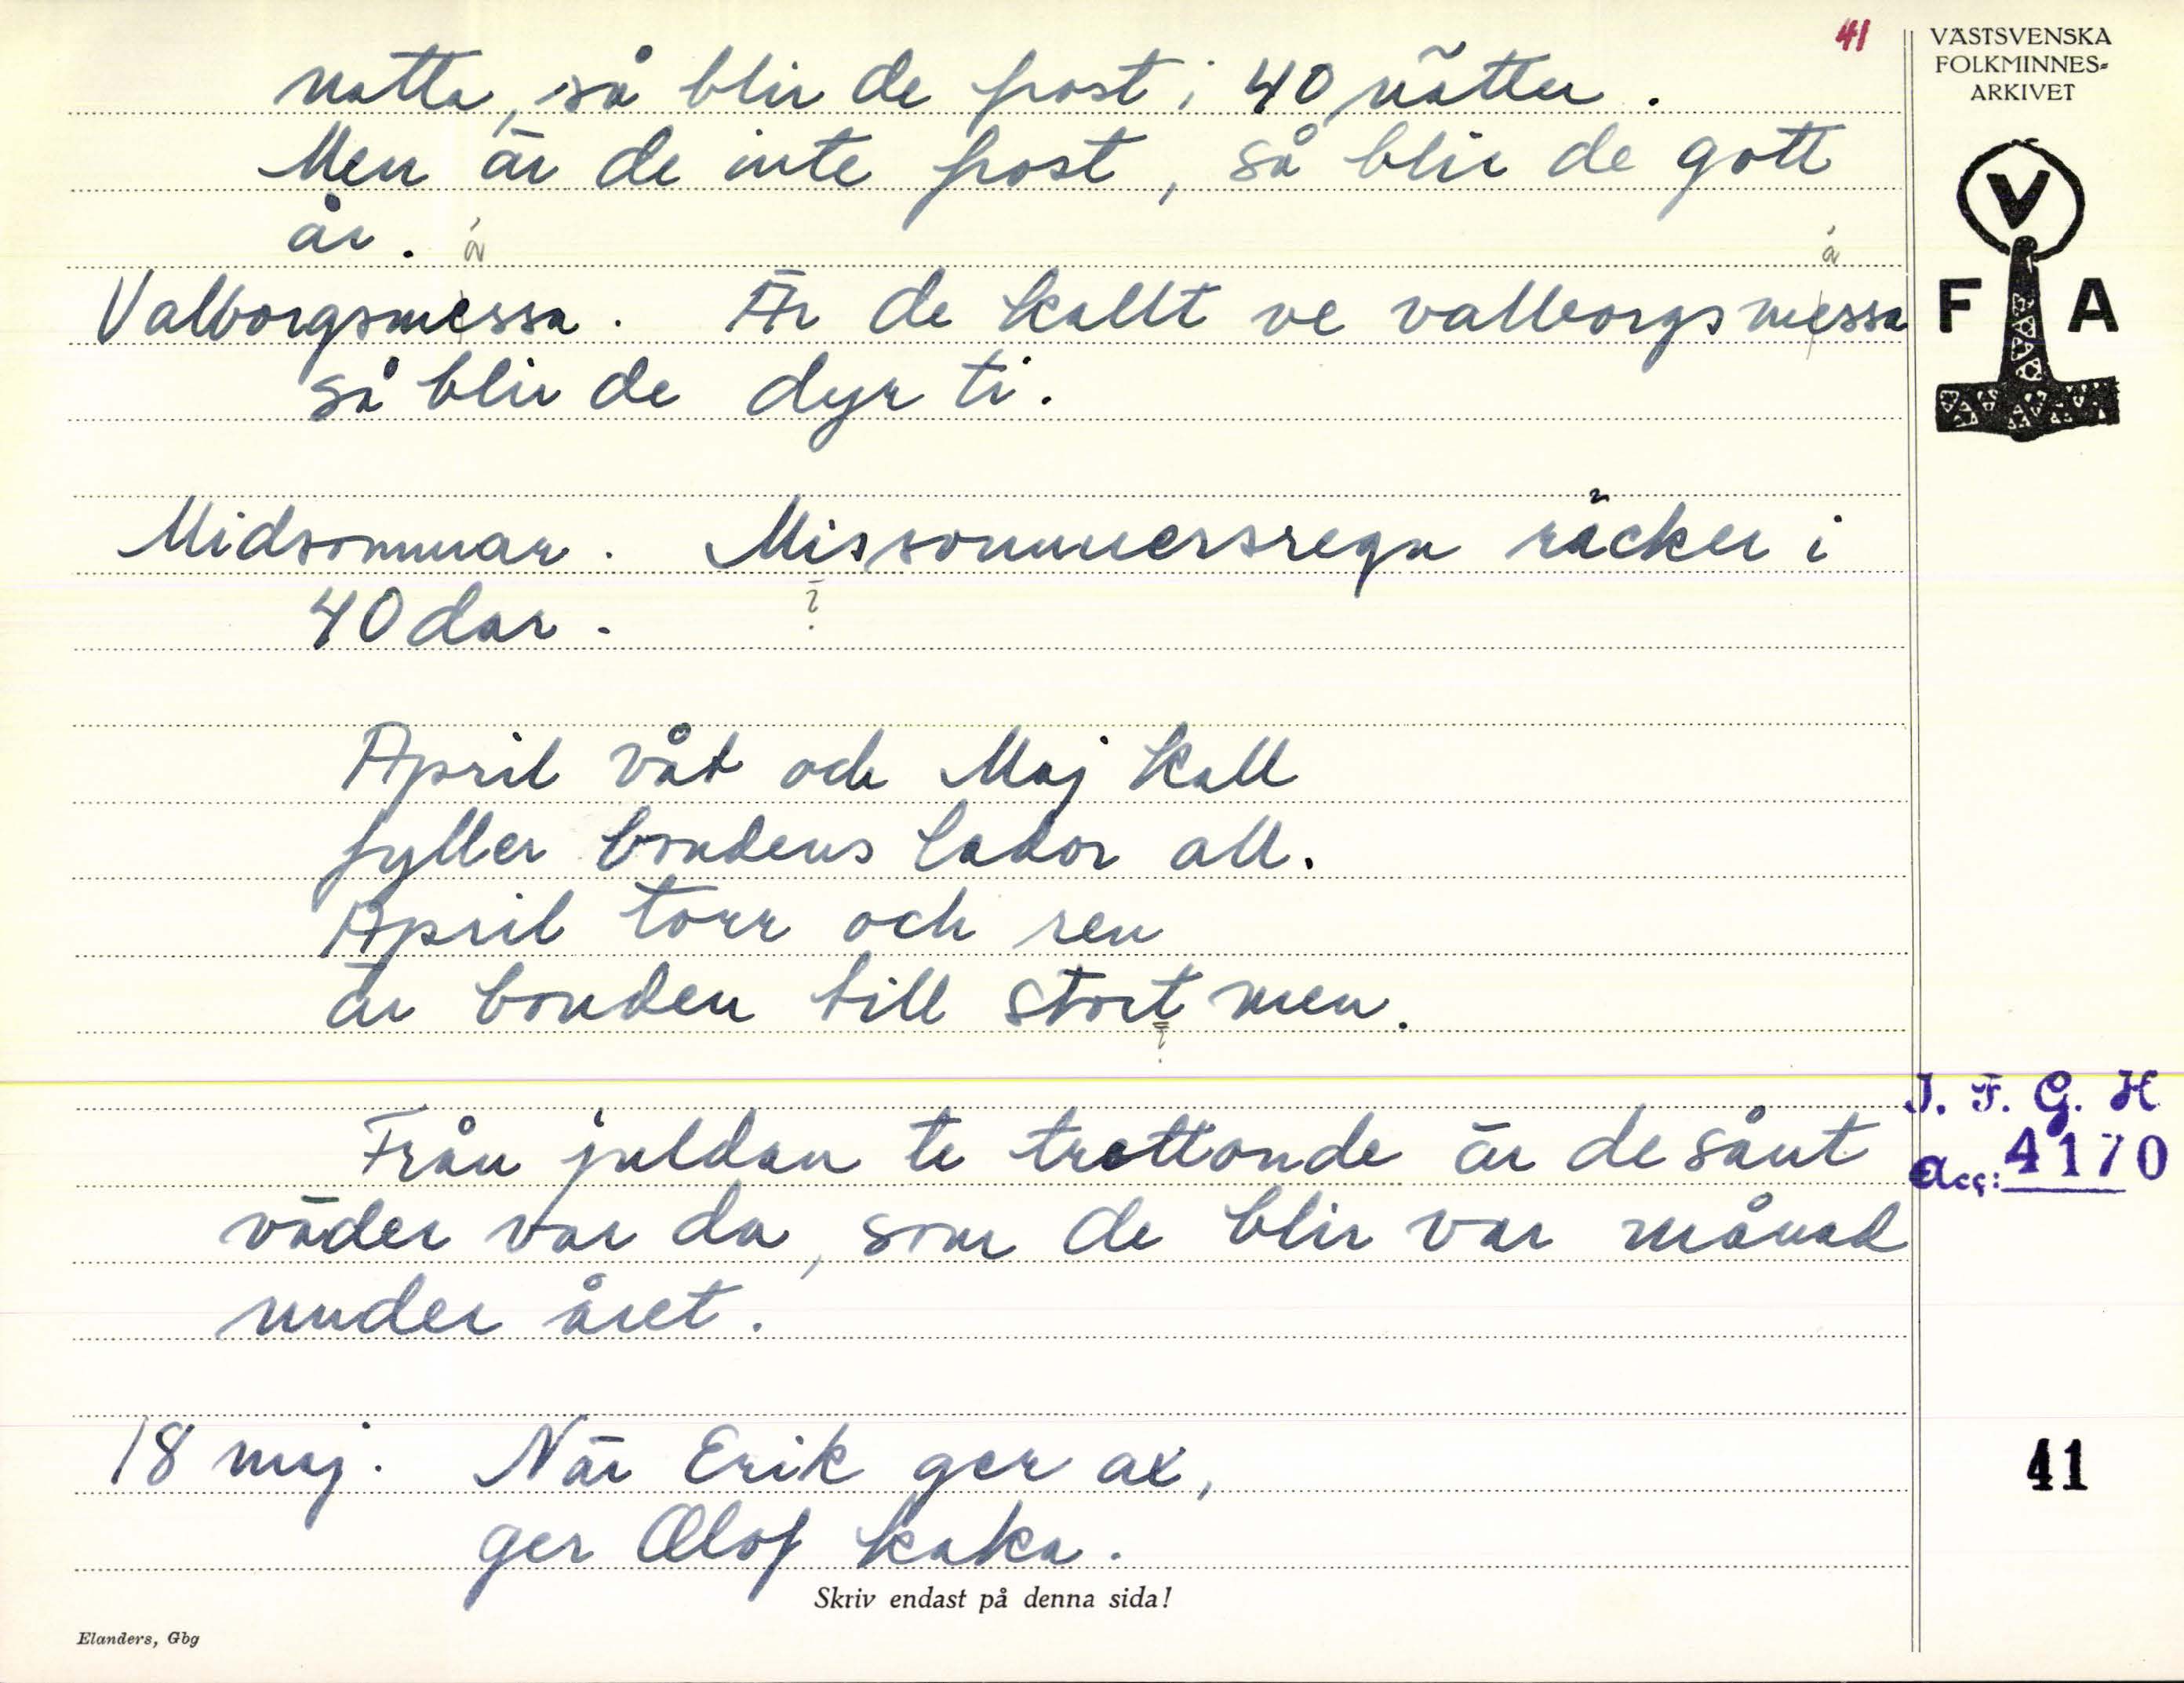 41
VÄSTSVENSKA
FOLKMINNES-
ARKIVET
V
F A
natta, så blir de frost i 40 nätter.
Men är de inte frost, så blir de gott
år.
Valborgsmessa. Är de kallt ve valborgsmessa
så blir de dyr ti.
Midsommar. Missommersregn räcker i
40 dar.
April våt och Maj kall
fyller bondens lador all.
April torr och ren
är bonden till stort men.
Från juldan te trettonde är de sånt
väder var da, som de blir var månad
under året.
18 maj. När Erik ger ax,
ger Olof kaka.
I. F. G. H
Acc: 4170
41
Skriv endast på denna sida!
Elanders, Gbg